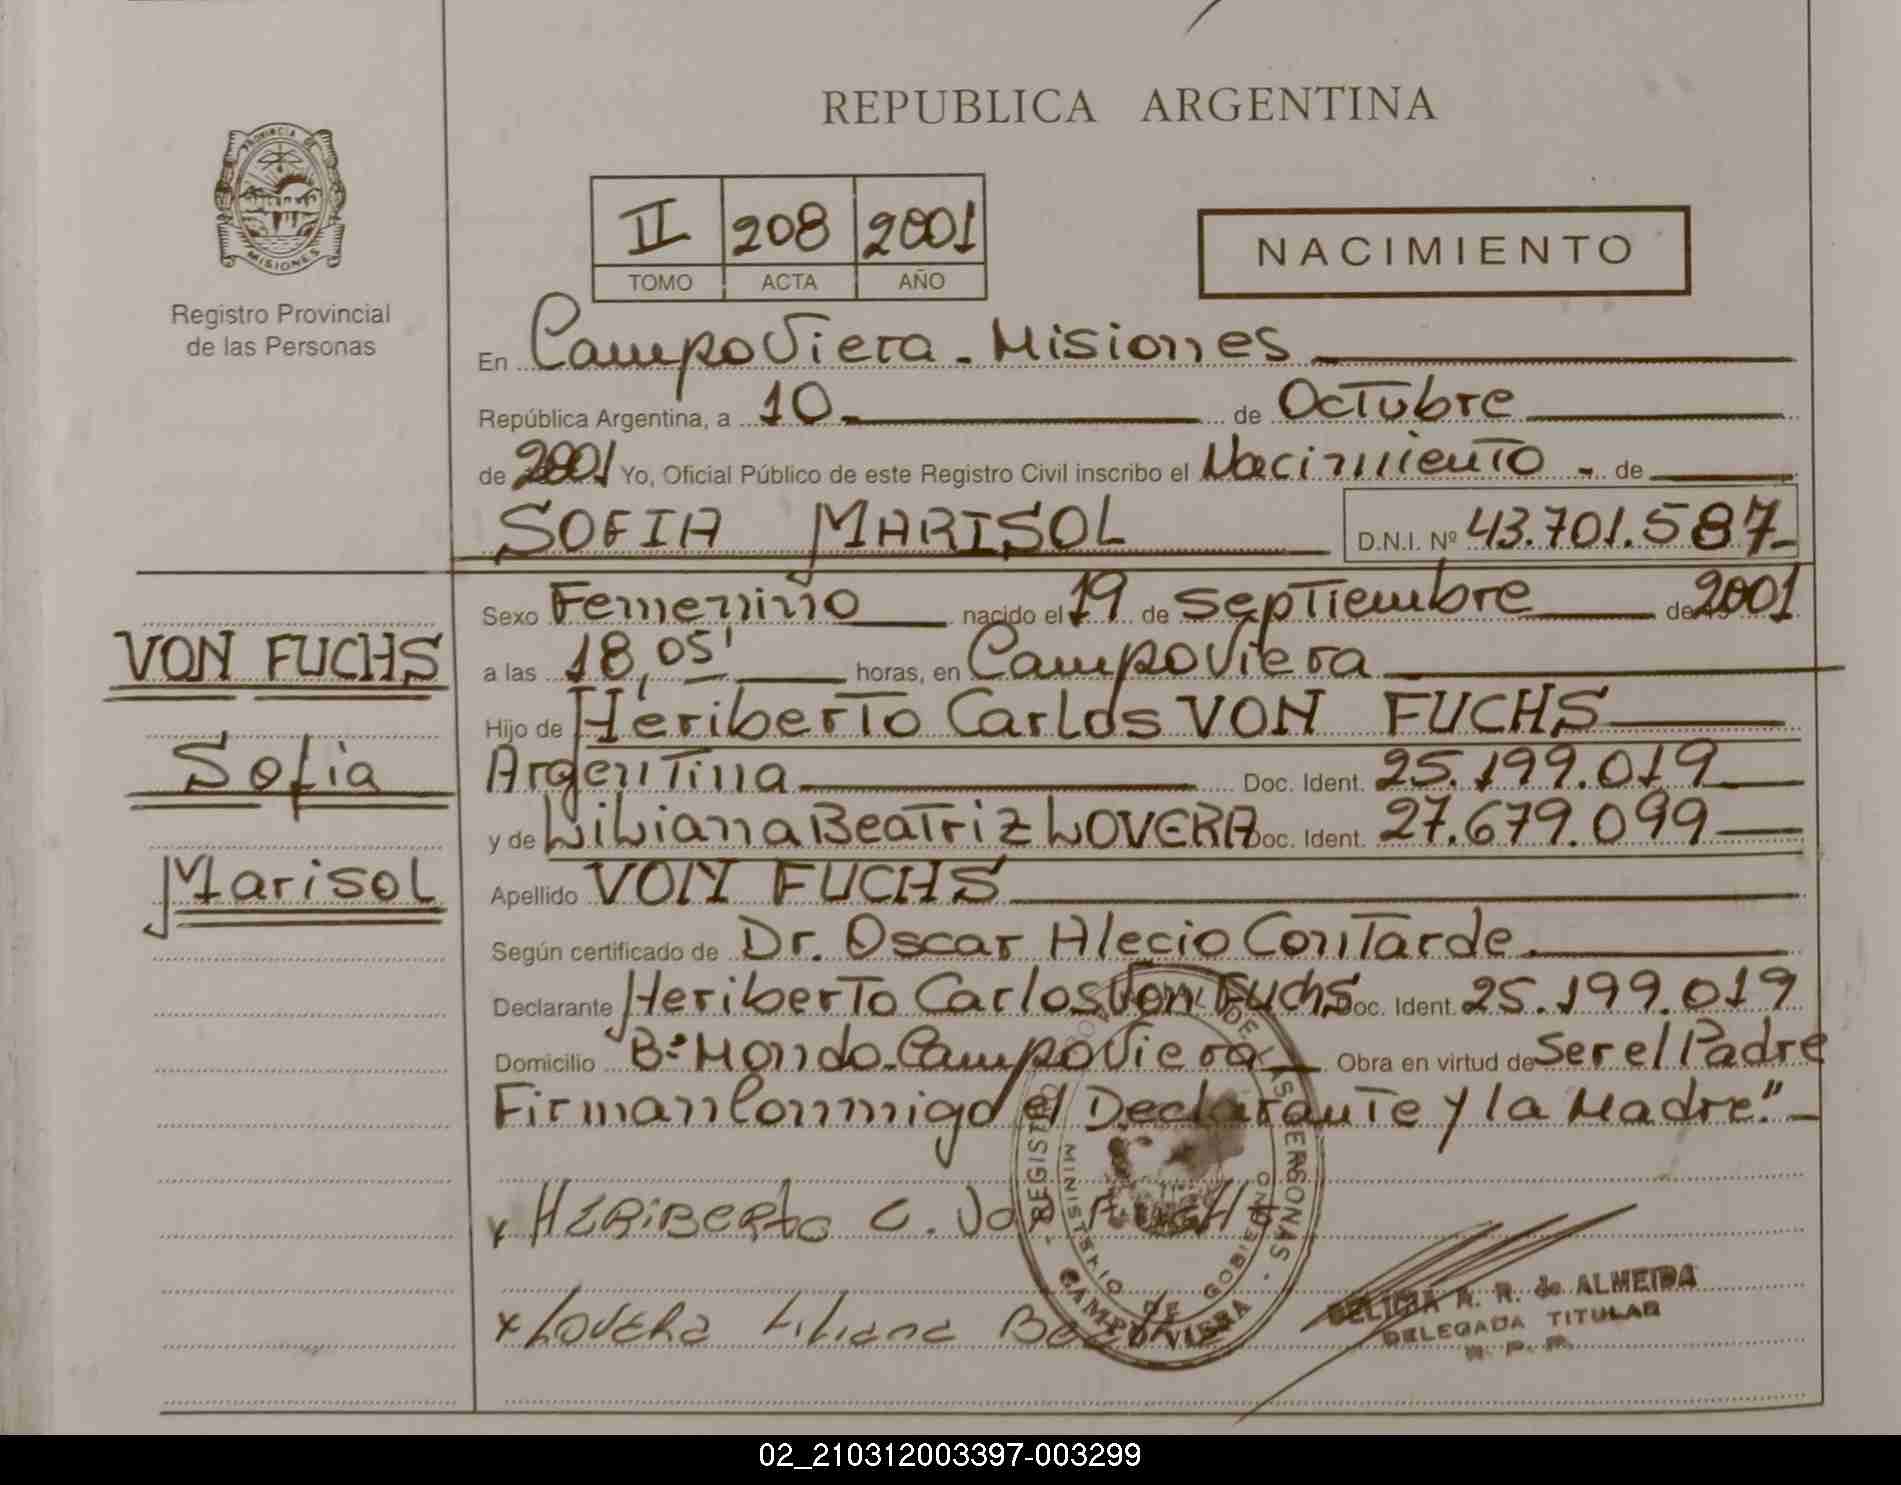 REPUBLICA ARGENTINA
PROVINCIA DE
MISIONES
Registro Provincial
de las Personas
II 208 2001
TOMO ACTA AÑO
NACIMIENTO
En Campo Viera - Misiones
República Argentina, a 10 de Octubre
de 2001 Yo, Oficial Público de este Registro Civil inscribo el Nacimiento - de
SOFIA MARISOL D.N.I. Nº 43.701.587
Sexo Femenino nacido el 19 de Septiembre de 2001
a las 18,05' horas, en Campo Viera
Hijo de Heriberto Carlos VON FUCHS
Argentina Doc. Ident. 25.199.019
y de Liliana Beatriz LOVERA Doc. Ident. 27.679.099
Apellido VON FUCHS
Según certificado de Dr. Oscar Alecio Contarde
Declarante Heriberto Carlos Von Fuchs Doc. Ident. 25.199.019
Domicilio Bº Mondo - Campo Viera Obra en virtud de Ser el Padre
Firman Conmigo el Declarante y la Madre".-
VON FUCHS
Sofia
Marisol
x HERIBERTO C. Von
x LOVERA Liliana
REGISTRO DE LAS PERSONAS
MINISTERIO DE GOBIERNO
CAMPO VIERA
R. de ALMEIDA
DELEGADA TITULAR
R. P. P.
02_210312003397-003299